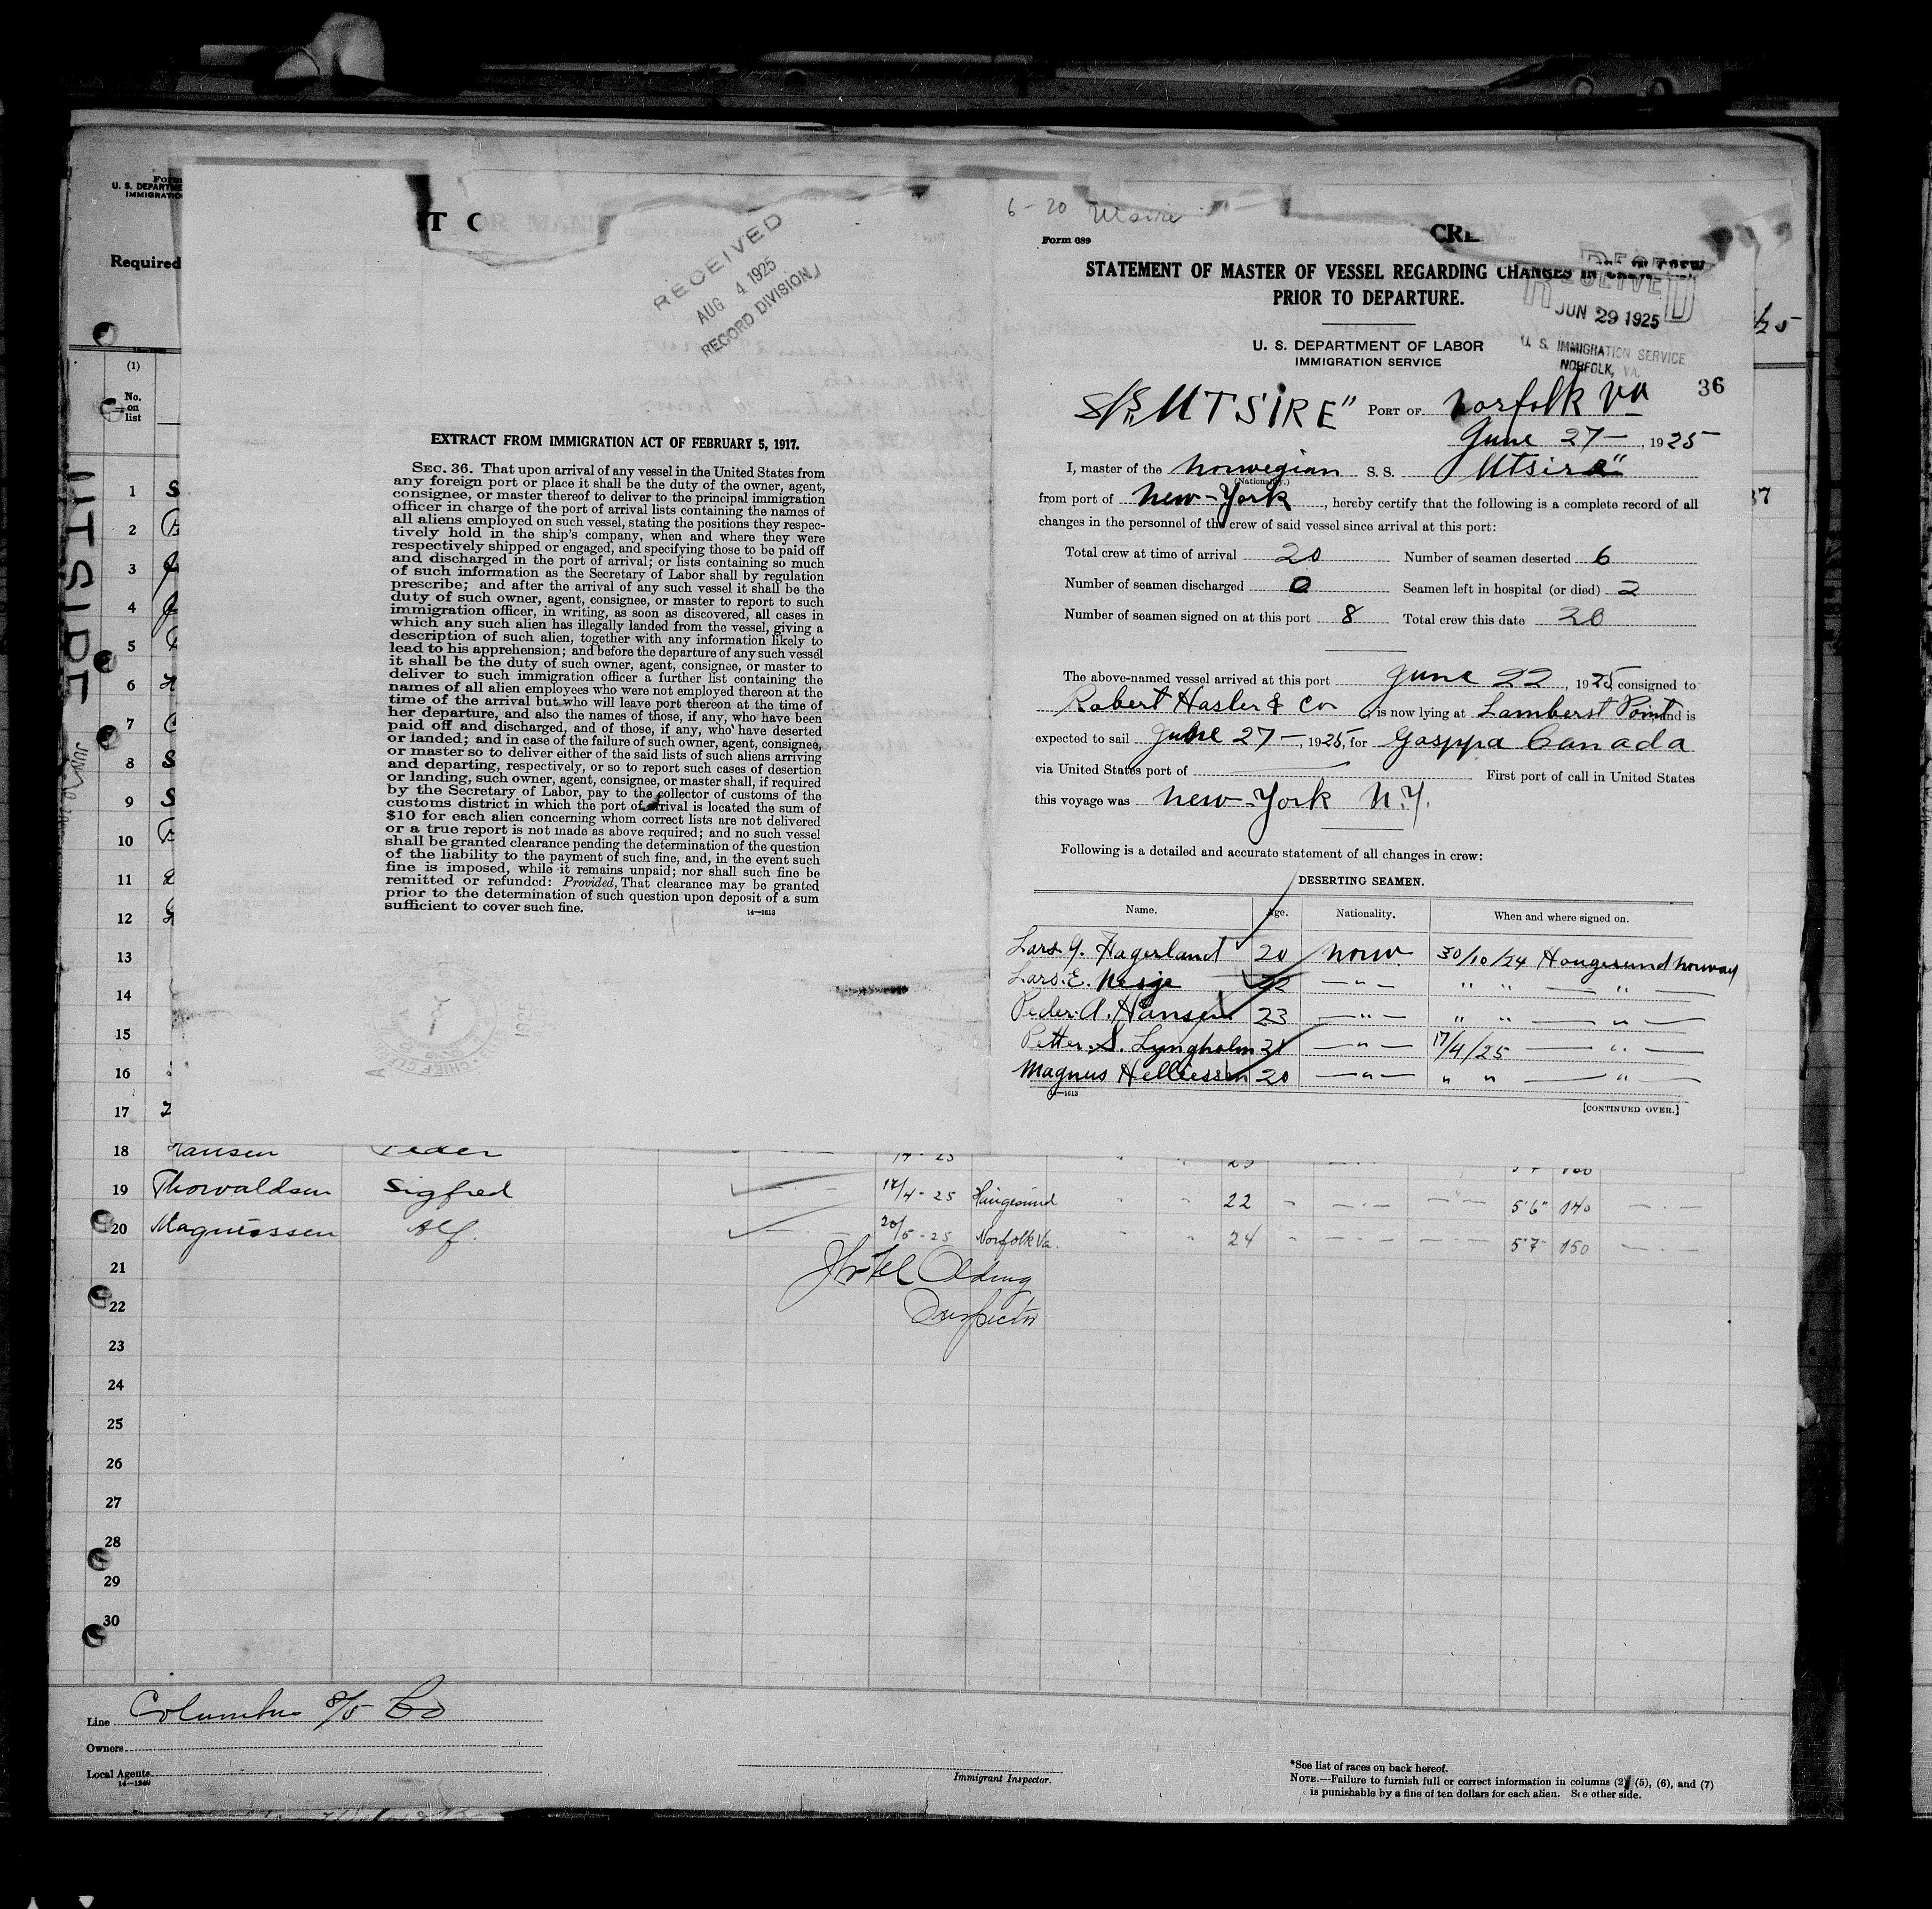 Form
U. S. DEPARTME
IMMIGRATIO
Required
(1)
No.
on
list
1 S
2
3
4
5
6
7
8 S
9 S
10
11
12
13
14
15
16
17
UTSIRE
JUN
T O
RECEIVED
AUG 4 1925
RECORD DIVISION
EXTRACT FROM IMMIGRATION ACT OF FEBRUARY 5, 1917.
SEC. 36. That upon arrival of any vessel in the United States from
any foreign port or place it shall be the duty of the owner, agent,
consignee, or master thereof to deliver to the principal immigration
officer in charge of the port of arrival lists containing the names of
all aliens employed on such vessel, stating the positions they respec-
tively hold in the ship's company, when and where they were
respectively shipped or engaged, and specifying those to be paid off
and discharged in the port of arrival; or lists containing so much
of such information as the Secretary of Labor shall by regulation
prescribe; and after the arrival of any such vessel it shall be the
duty of such owner, agent, consignee, or master to report to such
immigration officer, in writing, as soon as discovered, all cases in
which any such alien has illegally landed from the vessel, giving a
description of such alien, together with any information likely to
lead to his apprehension; and before the departure of any such vessel
it shall be the duty of such owner, agent, consignee, or master to
deliver to such immigration officer a further list containing the
names of all alien employees who were not employed thereon at the
time of the arrival but who will leave port thereon at the time of
her departure, and also the names of those, if any, who have been
paid off and discharged, and of those, if any, who have deserted
or landed; and in case of the failure of such owner, agent, consignee,
or master so to deliver either of the said lists of such aliens arriving
and departing, respectively, or so to report such cases of desertion
or landing, such owner, agent, consignee, or master shall, if required
by the Secretary of Labor, pay to the collector of customs of the
customs district in which the port of arrival is located the sum of
$10 for each alien concerning whom correct lists are not delivered
or a true report is not made as above required; and no such vessel
shall be granted clearance pending the determination of the question
of the liability to the payment of such fine, and, in the event such
fine is imposed, while it remains unpaid; nor shall such fine be
remitted or refunded: Provided, That clearance may be granted
prior to the determination of such question upon deposit of a sum
sufficient to cover such fine.
14—1613
6-20 Utsire
Form 689
CRE
STATEMENT OF MASTER OF VESSEL REGARDING CHANGES IN CREW
PRIOR TO DEPARTURE.
RECEIVED
JUN 29 1925
U. S. IMMIGRATION SERVICE
NORFOLK, VA.
U. S. DEPARTMENT OF LABOR
IMMIGRATION SERVICE
36
S/S "UTSIRE" PORT OF Norfolk Va
June 27—, 1925
I, master of the Norwegian S. S. "Utsira"
(Nationality.)
from port of New-York, hereby certify that the following is a complete record of all
changes in the personnel of the crew of said vessel since arrival at this port:
Total crew at time of arrival 20 Number of seamen deserted 6
Number of seamen discharged 0 Seamen left in hospital (or died) 2
Number of seamen signed on at this port 8 Total crew this date 20
The above-named vessel arrived at this port June 22, 1925, consigned to
Robert Hasler & Co is now lying at Lamberst Point and is
expected to sail June 27—, 1925, for Gasppa Canada
via United States port of — First port of call in United States
this voyage was New-York N.Y.
Following is a detailed and accurate statement of all changes in crew:
DESERTING SEAMEN.
Name. Age. Nationality. When and where signed on.
Lars J. Hagerland 20 Norw. 30/10/24 Haugesund Norway
Lars. E. Nesje 22 —"— " " — " —
Peder. A. Hansen 23 —"— " " — " —
Petter. S. Lyngholm 21 —"— 17/4/25 — " —
Magnus Helliessen 20 —"— " " — " —
14—1613
[CONTINUED OVER.]
18 Hansen Peder
19 Thorvaldsen Sigfred 17/4-25 Haugesund " " 22 " —"— —"— 5'6" 140 —"—
20 Magnussen Alf. 20/5-25 Norfolk Va. " " 24 — — 5'7" 150 —"—
21
22
Inspector
23
24
25
26
27
28
29
30
Line Columbus S/S Co
Owners
Local Agents
14—1240
Immigrant Inspector.
*See list of races on back hereof.
NOTE.—Failure to furnish full or correct information in columns (2), (5), (6), and (7)
is punishable by a fine of ten dollars for each alien. See other side.